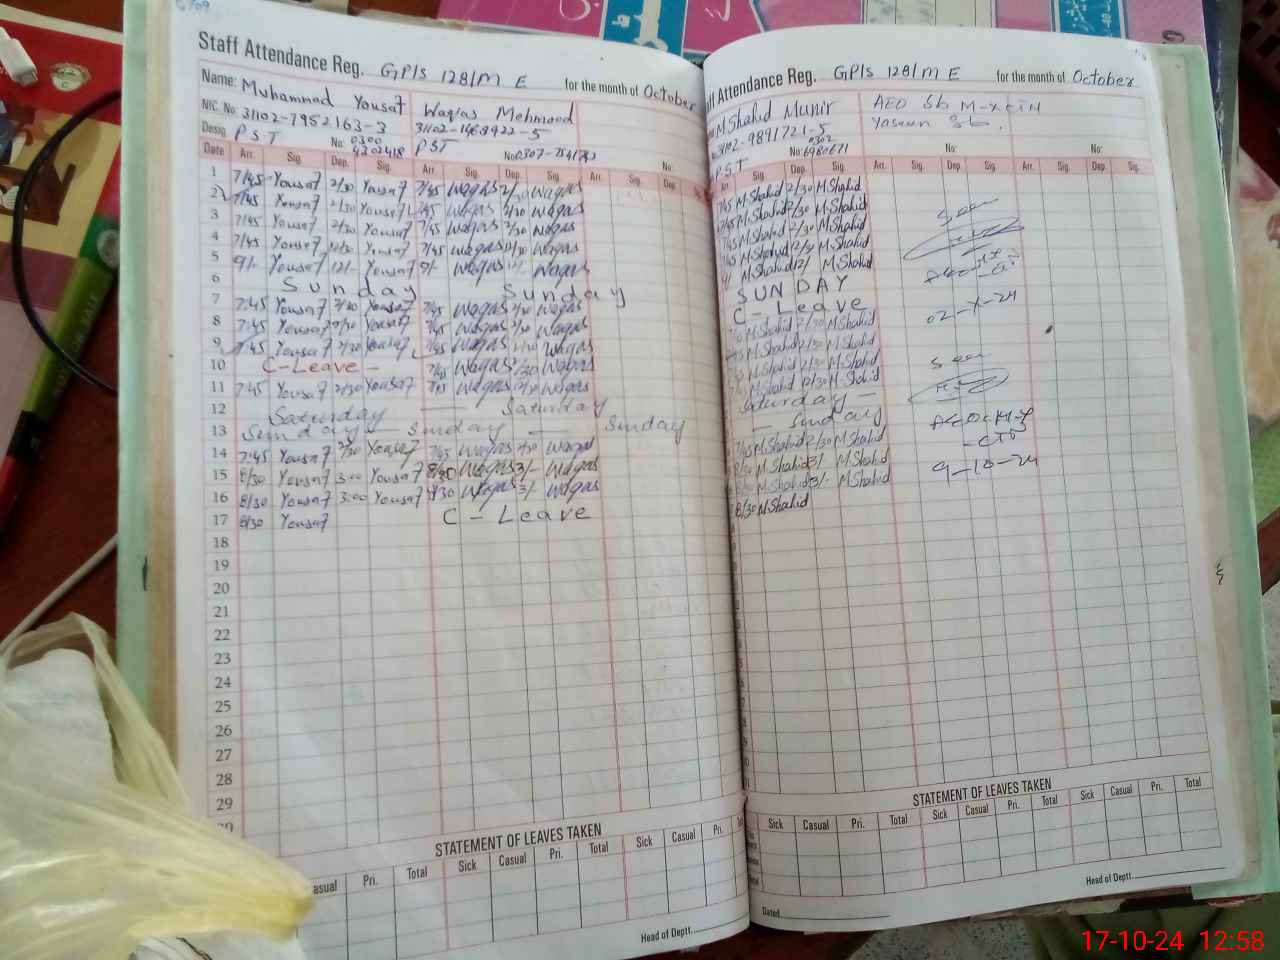 Staff Attendance Reg. GP/S 128/M E for the month of October
Name: Muhammad Yousaf Waqas Mehmood
NIC. No. 31102-7952163-3
Desig. PST No: 0300 PST
Date Arr. Sig. Dep. Sig. Arr. Sig. Dep. Sig. Arr. Sig. Dep. Sig.
1 7/45 Yousaf 2/30 Yousaf 7/45 Waqas 2/30 Waqas
2 7/45 Yousaf 2/30 Yousaf 7/45 Waqas 2/30 Waqas
3 7/45 Yousaf 2/30 Yousaf 7/45 Waqas 2/30 Waqas
4 7/45 Yousaf Yousaf 7/45 Waqas Waqas
5 9/- Yousaf 12/- Yousaf 9/- Waqas 12/- Waqas
6 Sunday Sunday
7 7:45 Yousaf 2/30 Yousaf 7/45 Waqas 2/30 Waqas
8 7:45 Yousaf 2/30 Yousaf 7/45 Waqas 2/30 Waqas
9 7:45 Yousaf 2/30 Yousaf 7/45 Waqas 2/30 Waqas
10 C-Leave - 7/45 Waqas 2/30 Waqas
11 7:45 Yousaf 12/30 Yousaf 7/45 Waqas 12/30 Waqas
12 Saturday — Saturday
13 Sunday — Sunday — Sunday
14 7:45 Yousaf 2/30 Yousaf 7/45 Waqas 2/30 Waqas
15 8/30 Yousaf 3:00 Yousaf 8/30 Waqas 3/- Waqas
16 8/30 Yousaf 3:00 Yousaf 8/30 Waqas 3/- Waqas
17 8/30 Yousaf C - Leave
18
19
20
21
22
23
24
25
26
27
28
29
STATEMENT OF LEAVES TAKEN
Pri. Total Sick Casual Pri. Total Sick Casual Pri.
Head of Deptt.
Attendance Reg. GP/S 128/M E for the month of October
M Shahid Munir AEO Sb
31102-9891721-5
PST No: 0302 No: No:
Arr. Sig. Dep. Sig. Arr. Sig. Dep. Sig. Arr. Sig. Dep. Sig.
7/45 M.Shahid 2/30 M.Shahid
7/45 M.Shahid 2/30 M.Shahid
7/45 M.Shahid 2/30 M.Shahid
7/45 M.Shahid M.Shahid
9/- M.Shahid 12/- M.Shahid
SUNDAY
C - Leave
M.Shahid 2/30 M.Shahid
M.Shahid 2/30 M.Shahid
M.Shahid 2/30 M.Shahid
M.Shahid 12/30 M.Shahid
Saturday —
— Sunday
7/45 M.Shahid 2/30 M.Shahid
8/30 M.Shahid 3/- M.Shahid
8/30 M.Shahid 3/- M.Shahid
8/30 M.Shahid
Seen
02-X-24
Seen
9-10-24
STATEMENT OF LEAVES TAKEN
Sick Casual Pri. Total Sick Casual Pri. Total Sick Casual Pri. Total
Dated
Head of Deptt.
17-10-24 12:58